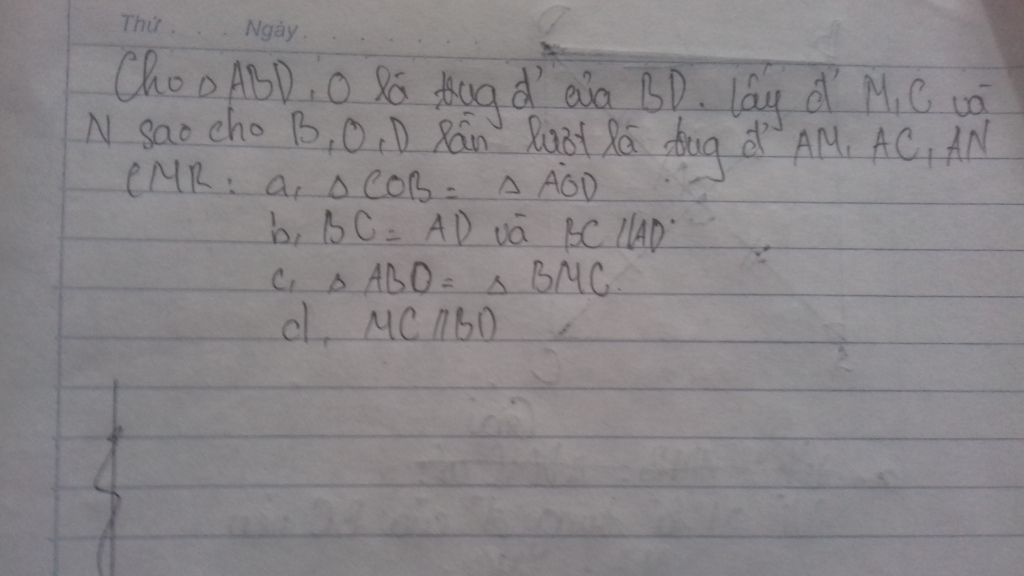 Thứ . . . Ngày . . . . . .
Cho △ ABD, O là trug đ' của BD. Lấy đ' M, C và
N sao cho B, O, D lần lượt là trug đ' AM, AC, AN
CMR: a, △ COB = △ AOD
b, BC = AD và BC // AD
c, △ ABD = △ BMC.
d, MC // BD